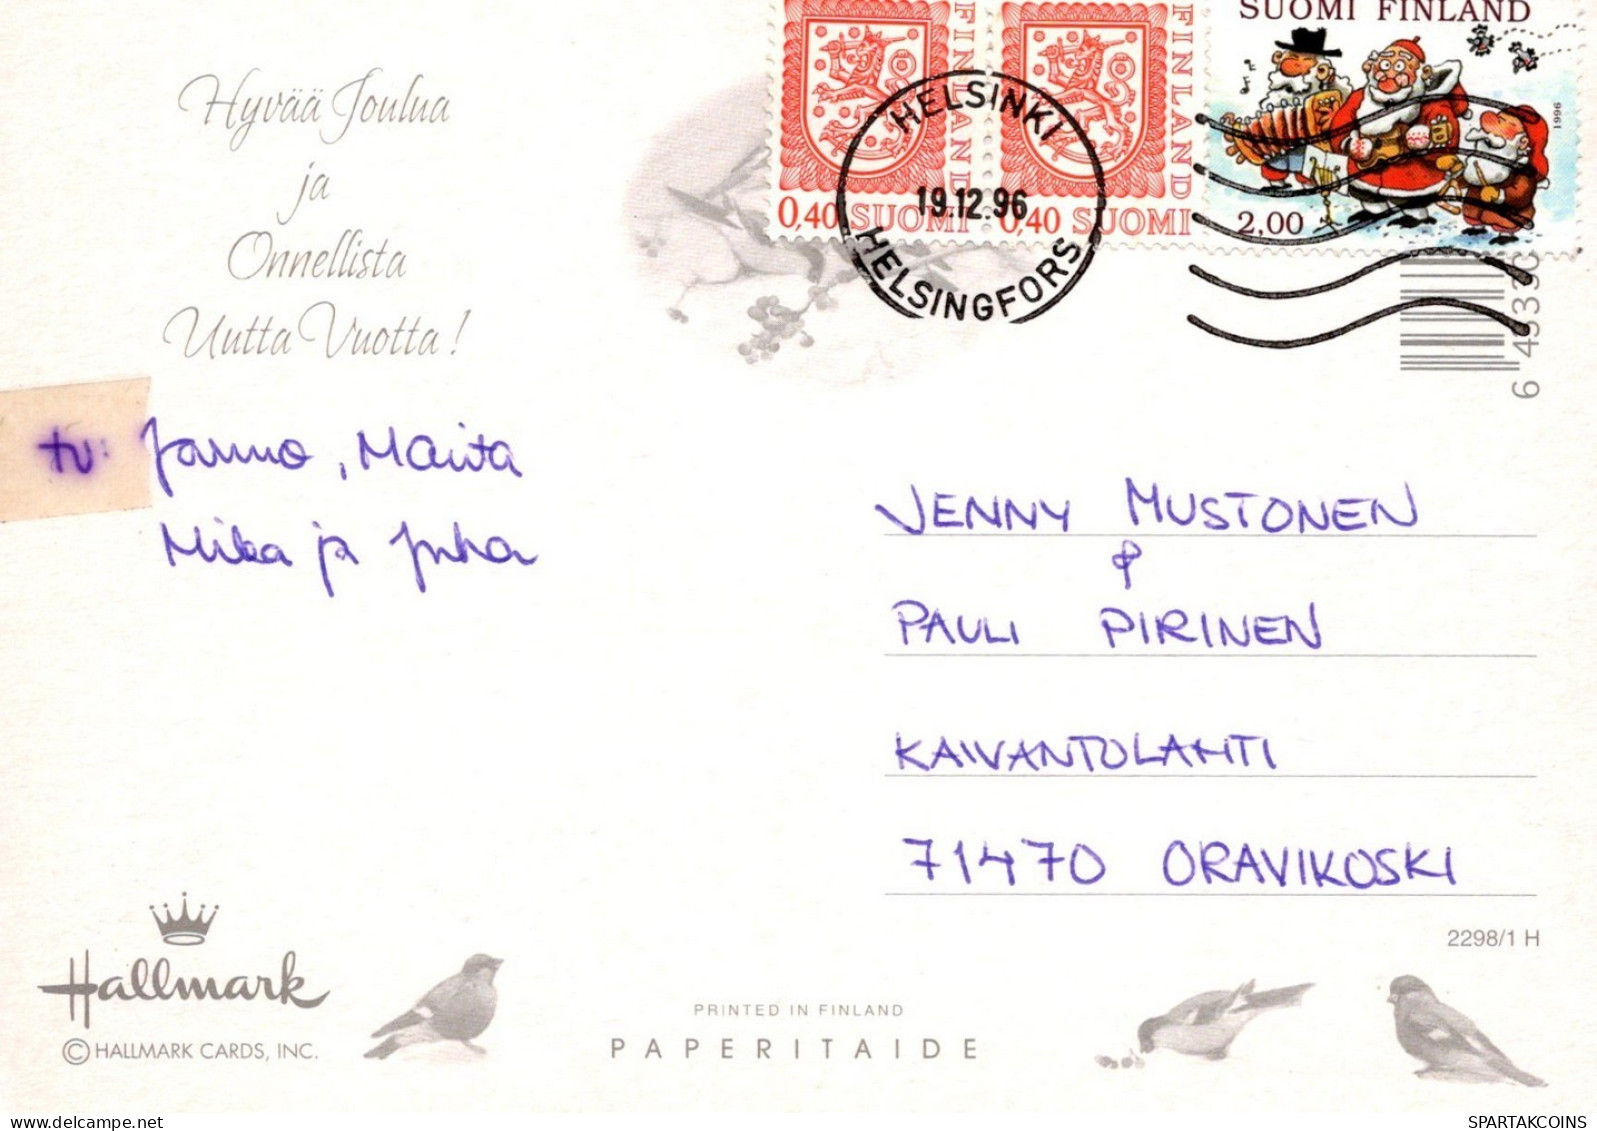 Hyvää Joulua
ja
Onnellista
Uutta Vuotta!
tv: Jarmo, Marita
Mika ja Juha
FINLAND
0,40 SUOMI
FINLAND
0,40 SUOMI
SUOMI FINLAND
1996
2,00
HELSINKI
19.12.96
HELSINGFORS
JENNY MUSTONEN
&
PAULI PIRINEN
KAIVANTOLAHTI
71470 ORAVIKOSKI
2298/1 H
Hallmark
© HALLMARK CARDS, INC.
PRINTED IN FINLAND
PAPERITAIDE
SPARTAKCOINS